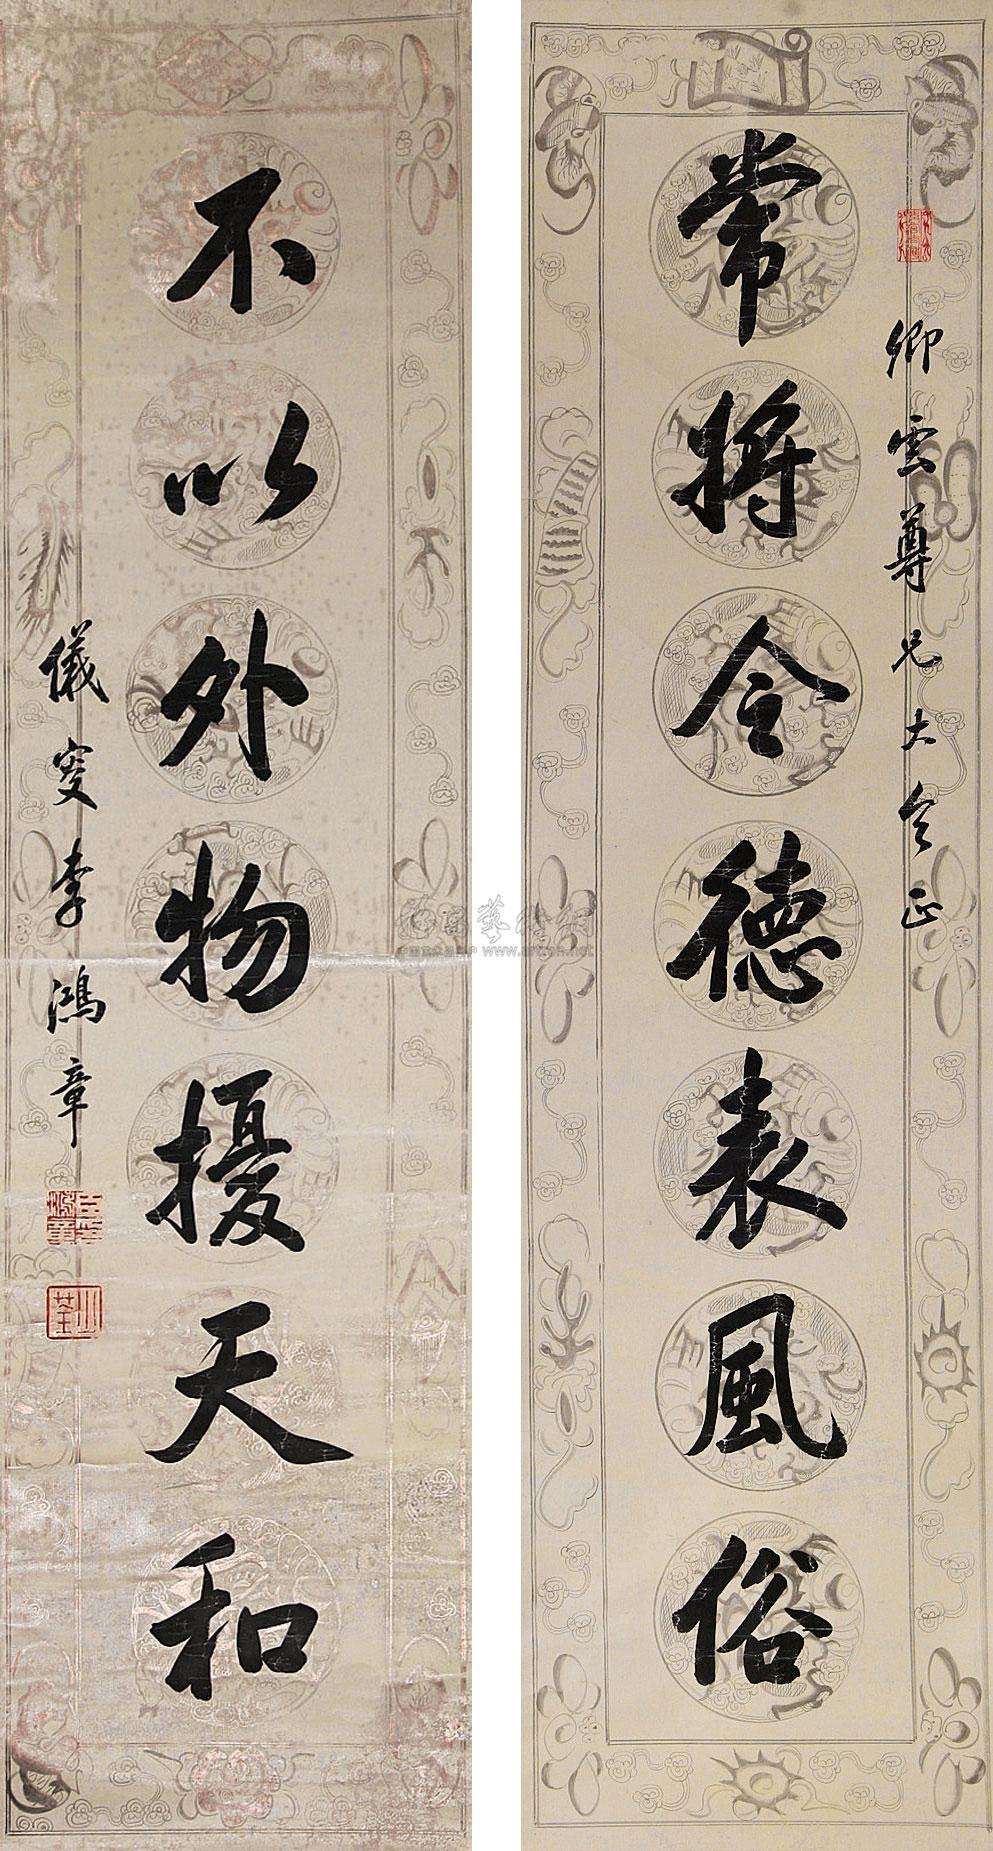 卿雲尊兄大令正
常將令德表風俗
不以外物擾天和
儀叟李鴻章
www.artxun.net